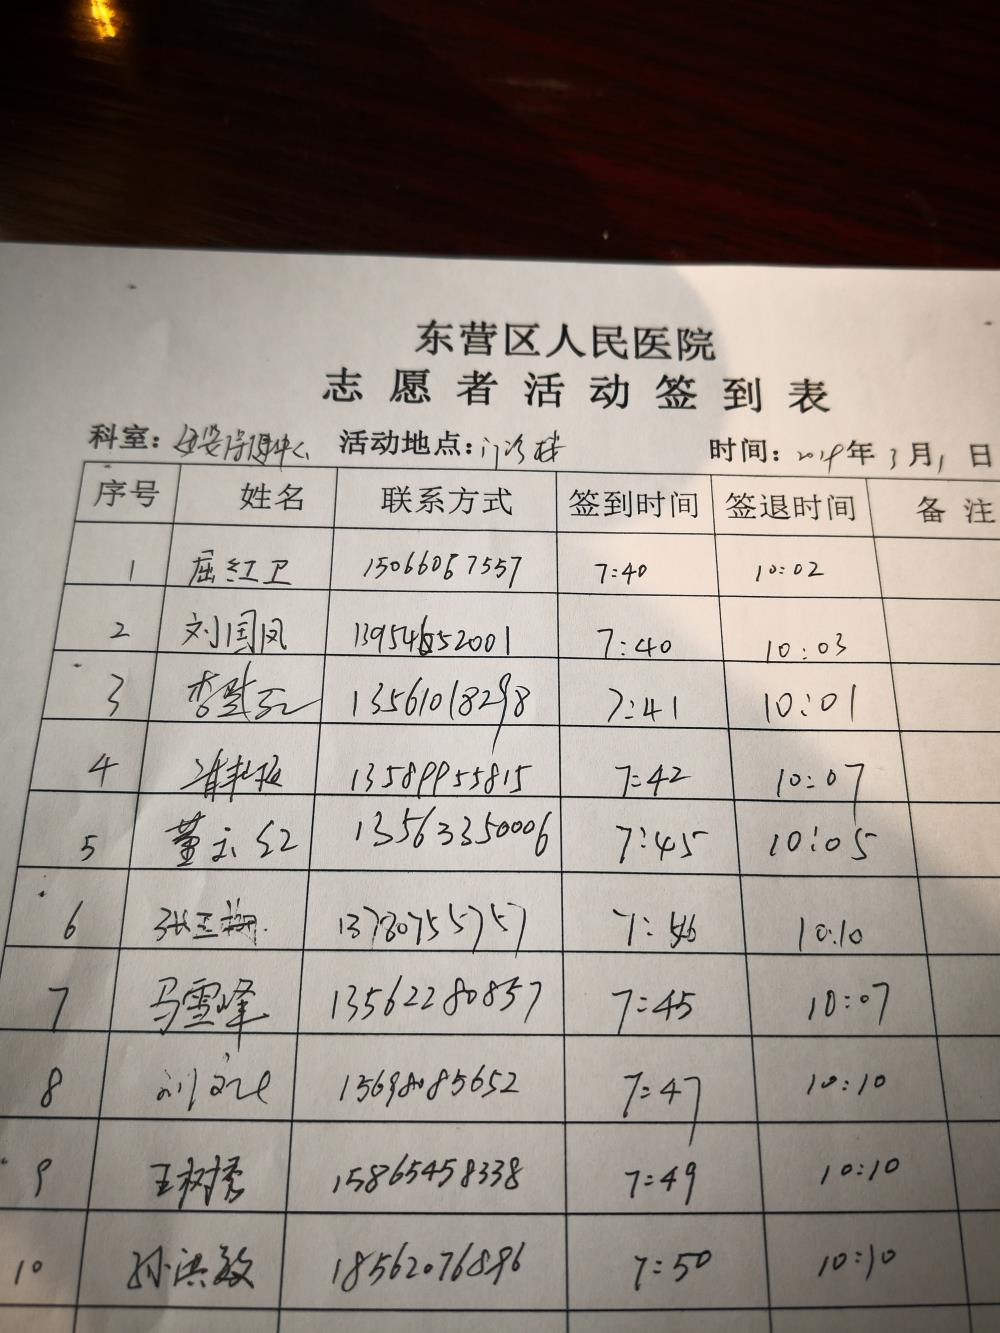 东营区人民医院
志愿者活动签到表
科室：妇婴保健中心 活动地点：门诊楼 时间：2019年3月1日
序号 姓名 联系方式 签到时间 签退时间 备注
1 屈红卫 15066067557 7:40 10:02
2 刘国凤 13954652001 7:40 10:03
3 李 13561018298 7:41 10:01
4 13589955815 7:42 10:07
5 董玉红 13563350006 7:45 10:05
6 张玉梅 13780755757 7:46 10:10
7 马雪峰 13562280857 7:45 10:07
8 刘文 13698085652 7:47 10:10
9 王树秀 15865458338 7:49 10:10
10 孙洪敏 18562076896 7:50 10:10